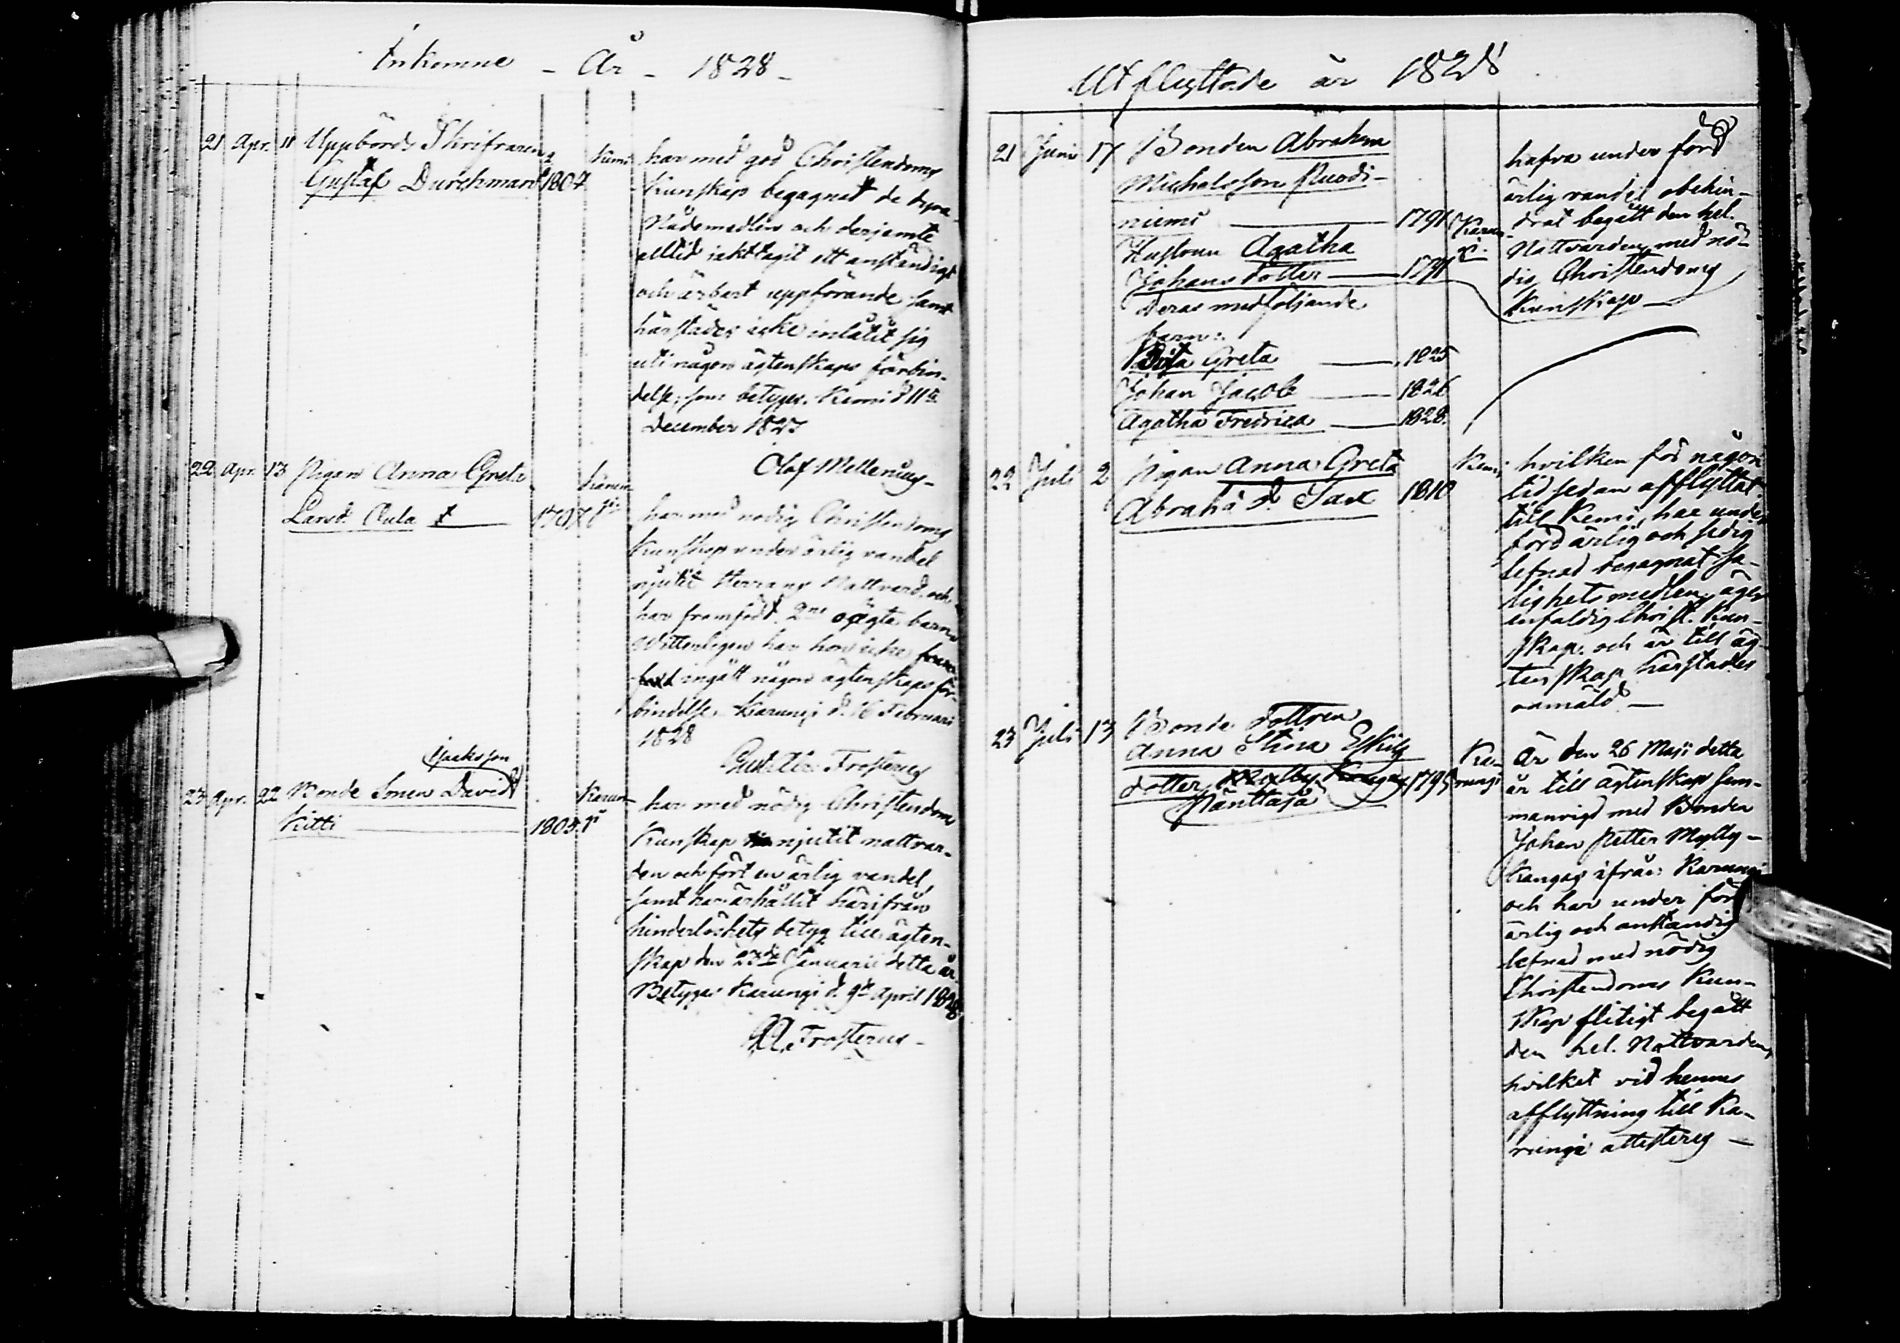 Inkomne - År - 1828 -
21 Apr. 11 Uppbörds Skrifvaren
Gustaf Durchman 1807 Kimi
har med god Christendoms
kunskap begagnat de dyra
Nådemedlen och derjemte
alltid iakttagit ett anständigt
och ärbart uppförande samt
härstädes icke inlåtit sig
uti någon ägtenskaps förbin-
delse; som betygas. Kemi d 11te
December 1827
Olof Mellenius -
22 Apr. 13 Pigan Anna Greta
Larsd. Oula 1797
har med nödig Christendoms
kunskap under ärlig vandel
njutit Herrans Nattvard, och
har framfödt 2ne oägta barn
Wetterligen har hon icke
ingått någon ägtenskaps för-
bindelse. Karungi d. 16 Februari
1828
Frosterus
Isaksson
23 Apr. 22 Bonde Sonen David
Kitti 1805 Karun-
gi
har med nödig Christendoms
Kunskap njutit nattvar-
den och fört en ärlig vandel,
samt har ärhållit härifrån
hinderlöshets betyg till ägten-
skap den 23de Januarii detta år
Betygas Karungi d. 9de April 1828
Frosterus -
Utflyttade år 1828
21 Junii 17 Bonden Abraham
Michelsson Ruodi-
niemi 1791 Karun-
gi
Hustrun Agatha
Johansdotter 1791
deras medföljande
barn:
Brita Greta 1825
Johan Jacob 1826
Agatha Fredrica 1828
hafva under förd
ärlig vandel obehin-
drat begått den hel.
Nattvarden med nö-
dig Christendoms
Kunskap -
22 Juli 2 Pigan Anna Greta
Abrah. d. Sax 1810 Kemi
hvilken för någon
tid sedan afflyttat
till Kemi, har under
förd ärlig och sedig
lefnad begagnat sa-
lighetsmedlen, äger
enfaldig Christ. Kun-
skap. och är till äg-
tenskap härstädes
oanmäld -
23 Juli 13 Bonde dottren
Anna Stina Eskils
dotter 1795 Ka-
rungi
Är den 26 Maji detta
år till ägtenskap sam-
manvigd med Bonden
Johan Petter Mylly-
kangas ifrån Karungi
och har under förd
ärlig och anständig
lefnad med nödig
Christendoms Kun-
skap flitigt begått
den hel. Nattvarden,
hvilket vid hennes
afflyttning till Ka-
rungi attesteras -